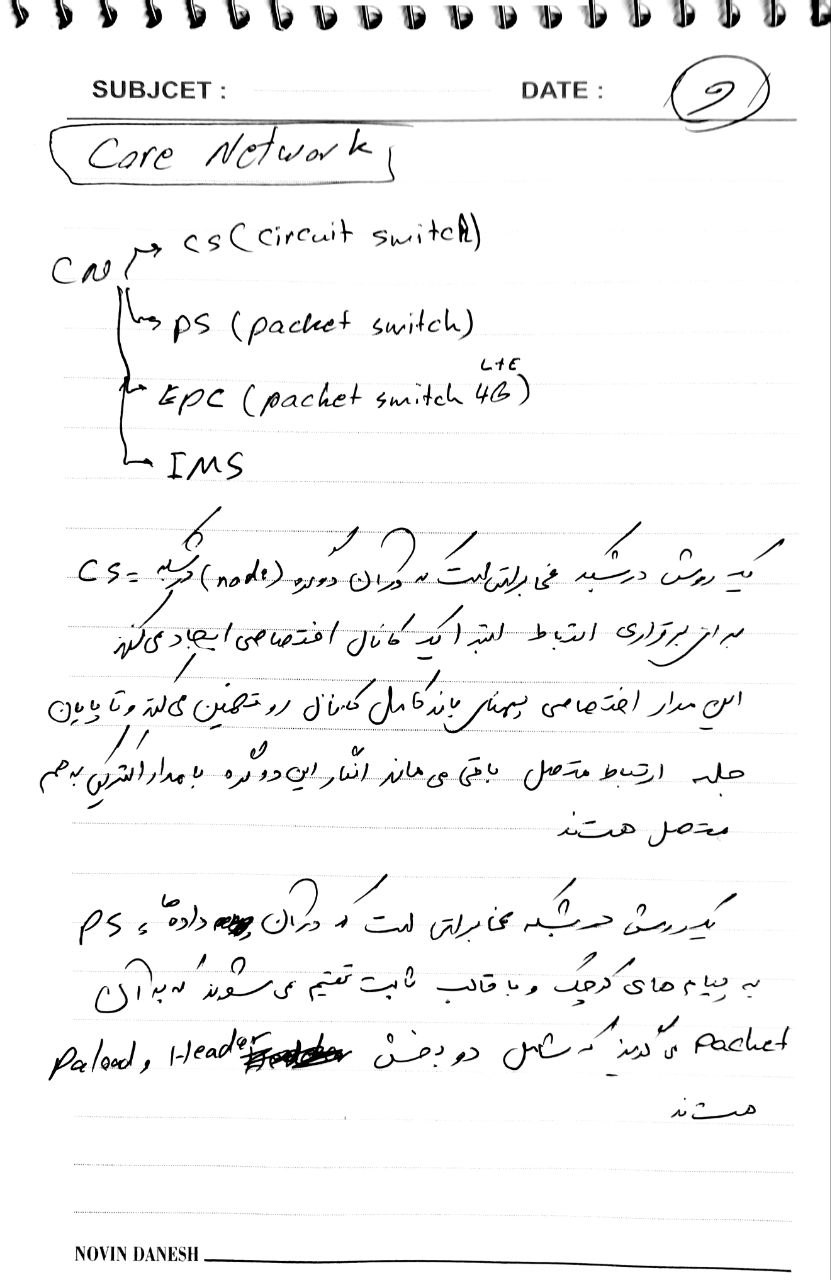 SUBJCET :
DATE :
9
Core Network
CN
CS (circuit switch)
PS (packet switch)
LTE
EPC (packet switch 4G)
IMS
CS = یک روش در شبکه مخابراتی است که در آن دو گره (node) در شبکه
برای برقراری ارتباط ابتدا یک کانال اختصاصی ایجاد می‌کنند
این مدار اختصاصی پهنای باند کامل کانال رو تضمین می‌کند و تا پایان
جلسه ارتباط متصل باقی می‌ماند انگار این دو گره با مدار الکتریکی به هم
متصل هستند
PS : یک روش در شبکه مخابراتی است که در آن داده ها
به پیام های کوچک و با قالب ثابت تقسیم می‌شوند که به آن
Packet می‌گویند که شامل دو بخش Header و Paload
هستند
NOVIN DANESH